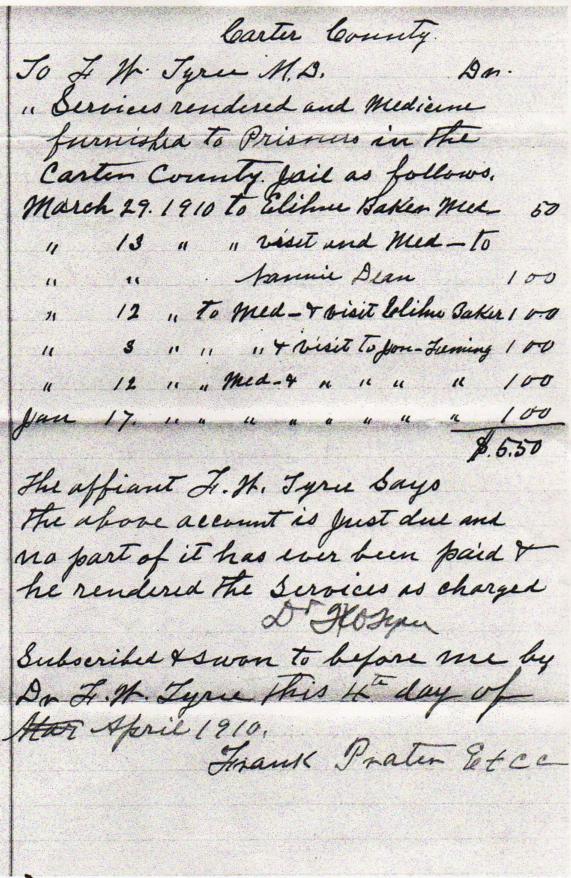 Carter County.
To F. W. Tyree M.D. Dr.
" Services rendered and Medicine
furnished to Prisners in the
Carter County Jail as follows.
March 29. 1910 to Elihue Baker Med 50
" 13 " " visit and Med — to
" " Nannie Dean 1 00
" 12 " to Med — & visit Elihue Baker 1 00
" 3 " " " & visit to Jon-Fleming 1 00
" 12 " " Med-& " " " " 1 00
Jan 17. " " " " " " " 1 00
$.5.50
The affiant F. W. Tyree Says
the above account is Just due and
no part of it has ever been paid &
he rendered the Services as charged
Dr
Subscribed & swon to before me by
Dr F. W. Tyree this 4th day of
Mar April 1910.
Frank Prater